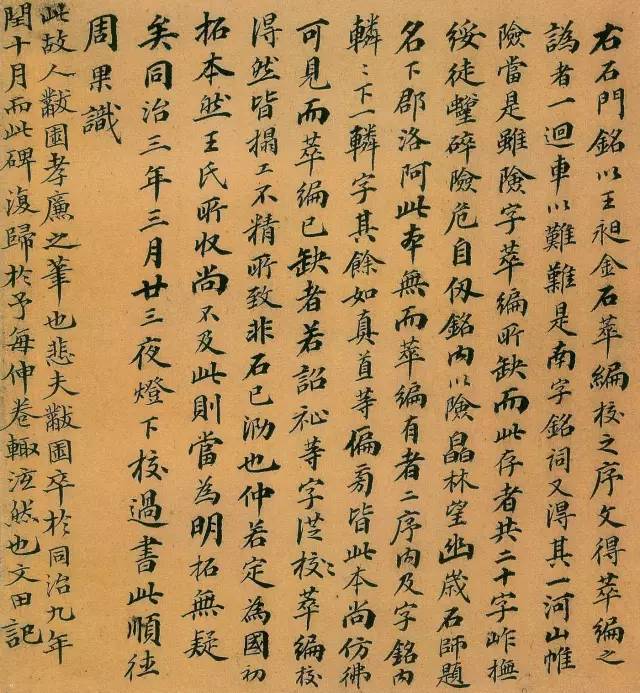 右石門銘以王昶金石萃編校之序文得萃編之
譌者一迴車以難難是南字銘詞又得其一河山帷
險當是雖險字萃編所缺而此存者共二十字岝橅
綏徒蠥碎險危自仭銘内以險晶林望幽歲石師題
名下郡洛阿此本無而萃編有者二序内及字銘内
轔〻下一轔字其餘如真首等偏旁皆此本尚仿彿
可見而萃編已缺者若詔祉等字洪校〻萃編校
得然皆搨工不精所致非石已泐也仲若定為國初
拓本然王氏所收尚不及此則當為明拓無疑
矣同治三年三月廿三夜燈下校過書此順徳
周果識
此故人黻圃孝廉之筆也悲夫黻圃卒於同治九年
閏十月而此碑復歸於予每伸卷輒泫然也文田記